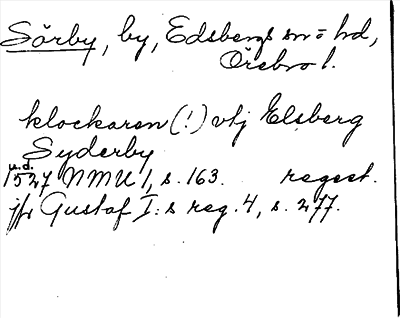 Sörby, by, Edsbergs sn o hd,
Örebro l.
klockaren (!) vhj Elsberg
Syderby
u.d.
1527 NMU 1, s. 163. regest.
jfr Gustaf I:s reg. 4, s. 277.